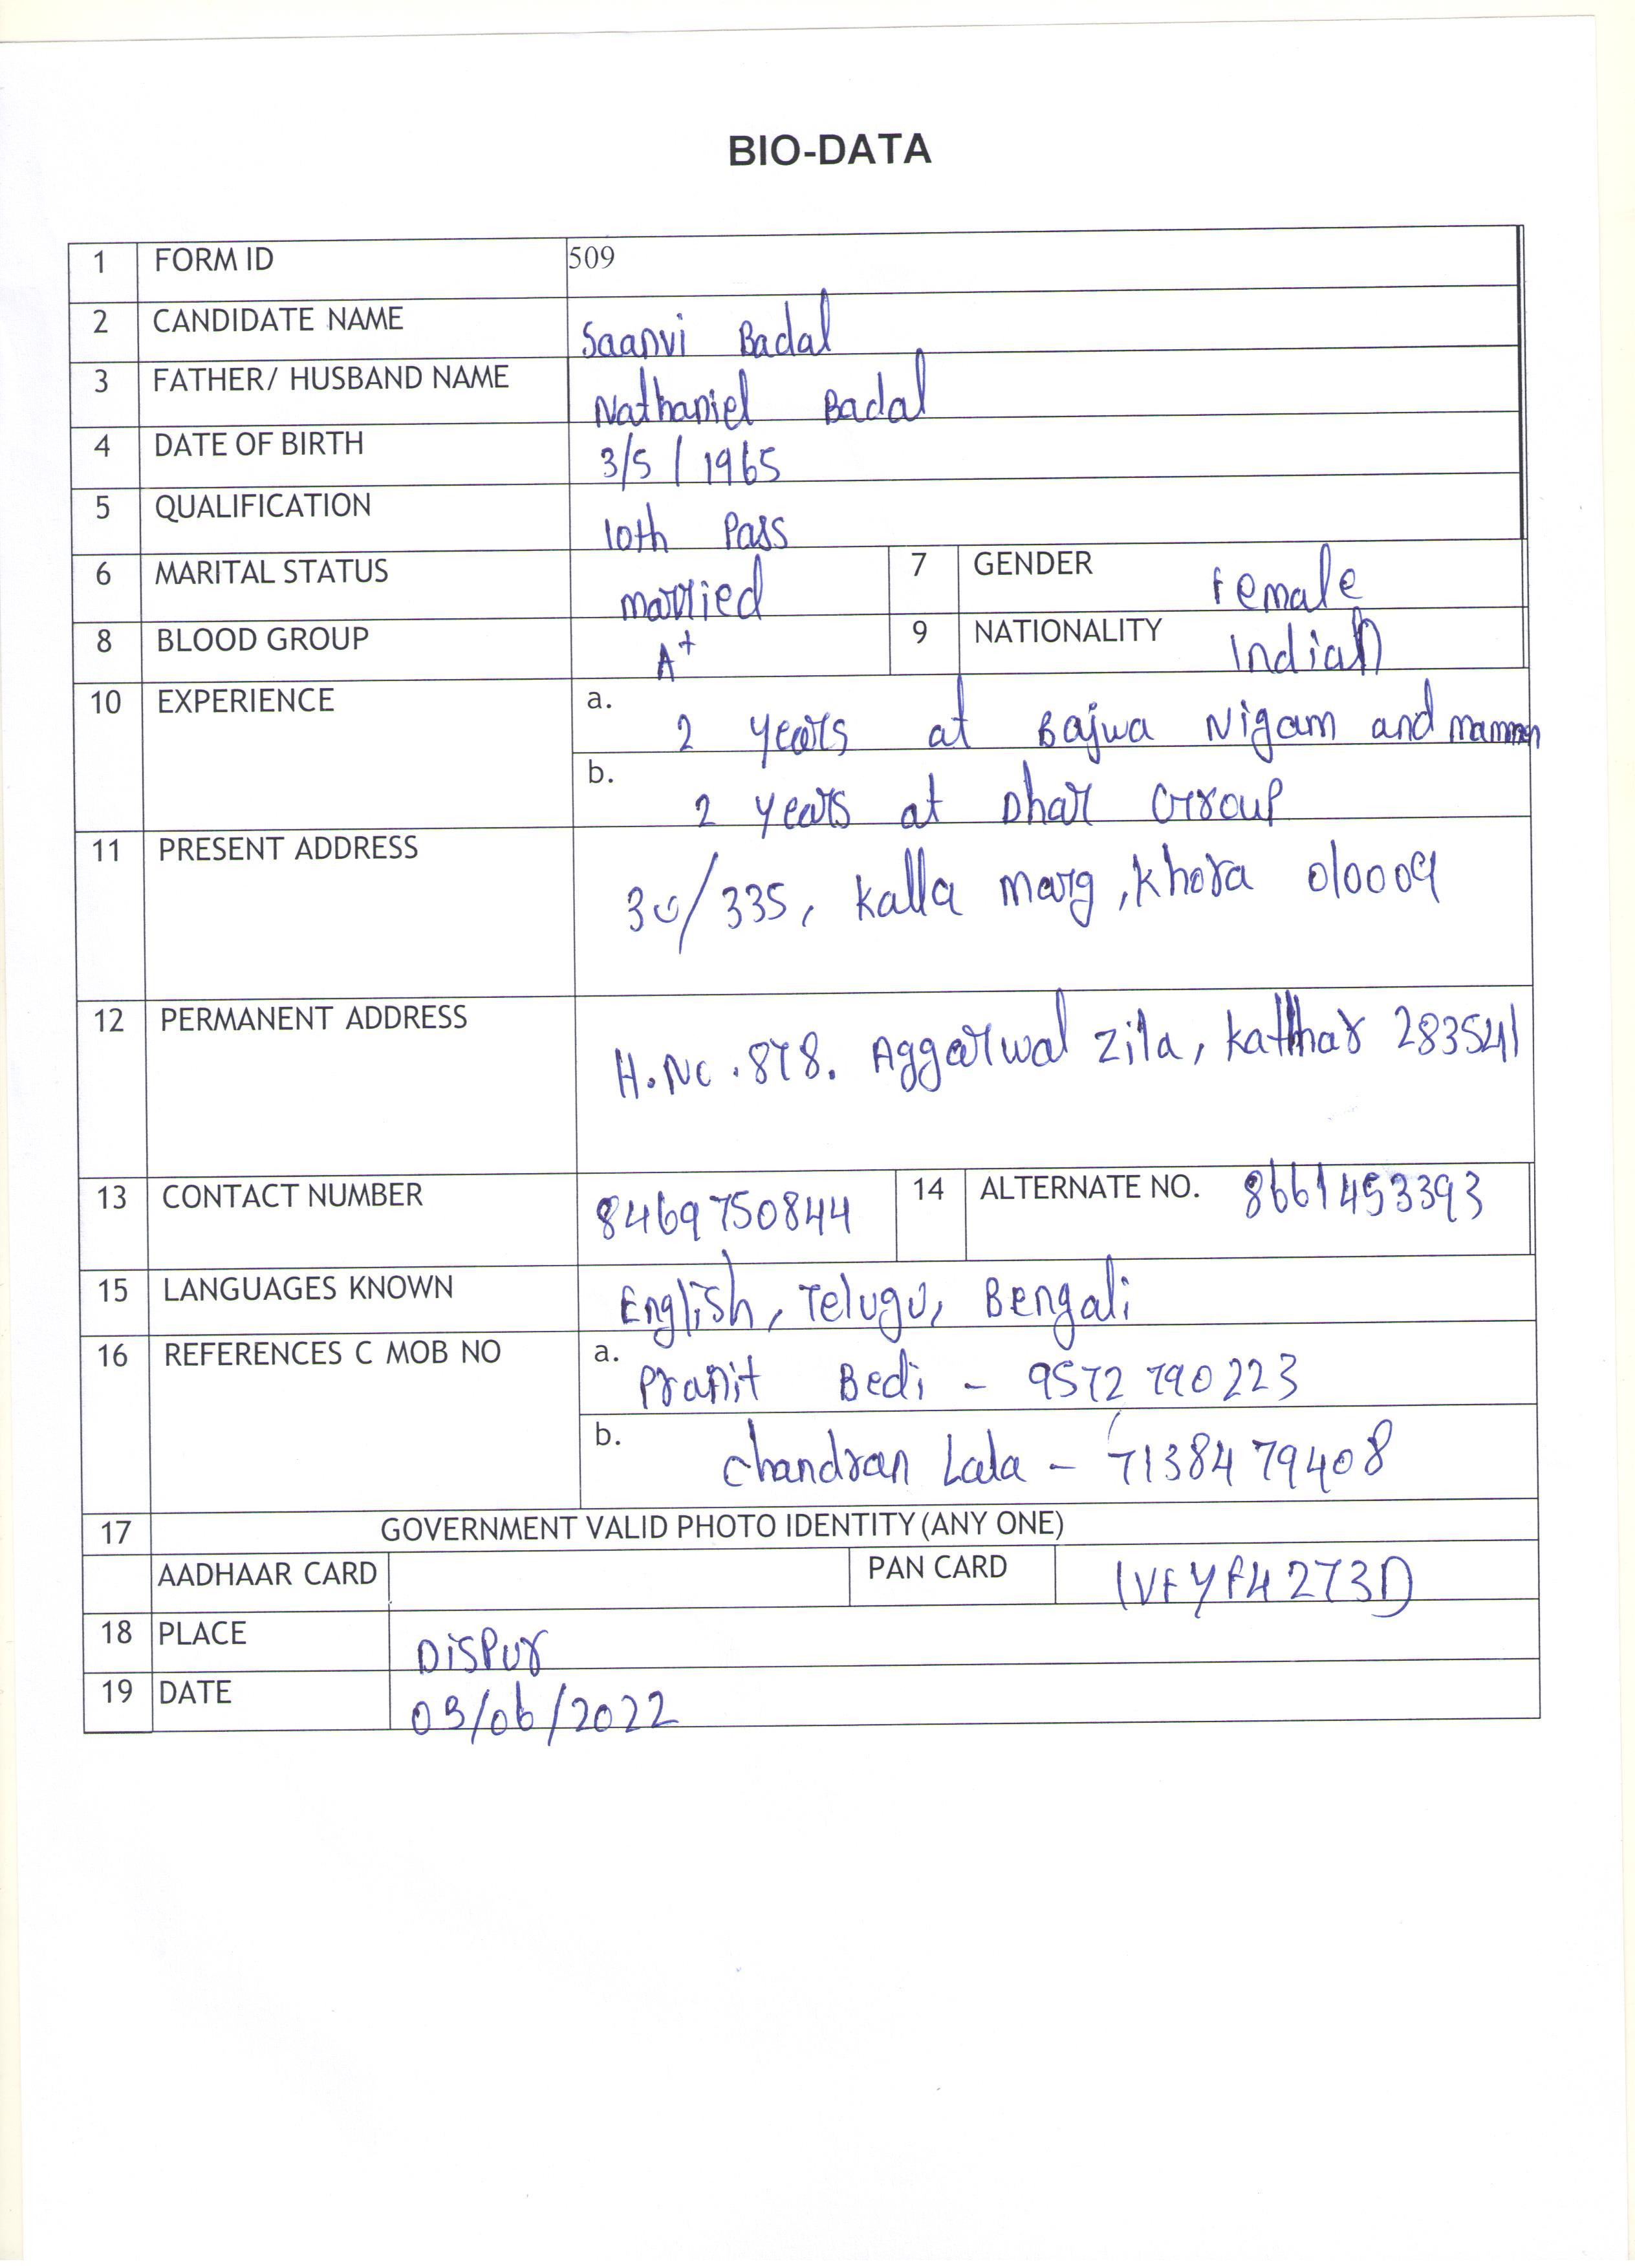 BIO-DATA
1 FORM ID 509
2 CANDIDATE NAME Saanvi Badal
3 FATHER/ HUSBAND NAME Nathaniel Badal
4 DATE OF BIRTH 3/5/1965
5 QUALIFICATION 10th Pass
6 MARITAL STATUS married 7 GENDER Female
8 BLOOD GROUP A+ 9 NATIONALITY Indian
10 EXPERIENCE a. 2 years at Bajwa Nigam and mammen
b. 2 years at Dhar Group
11 PRESENT ADDRESS 30/335, Kalla Marg, Khora 010009
12 PERMANENT ADDRESS H.No. 878. Aggarwal Zila, Katihar 283541
13 CONTACT NUMBER 8469750844 14 ALTERNATE NO. 8661453393
15 LANGUAGES KNOWN English, Telugu, Bengali
16 REFERENCES C MOB NO a. Pranit Bedi - 9572790223
b. Chandran Lala - 7138479408
17 GOVERNMENT VALID PHOTO IDENTITY (ANY ONE)
AADHAAR CARD PAN CARD IVFYF4273D
18 PLACE Dispur
19 DATE 03/06/2022